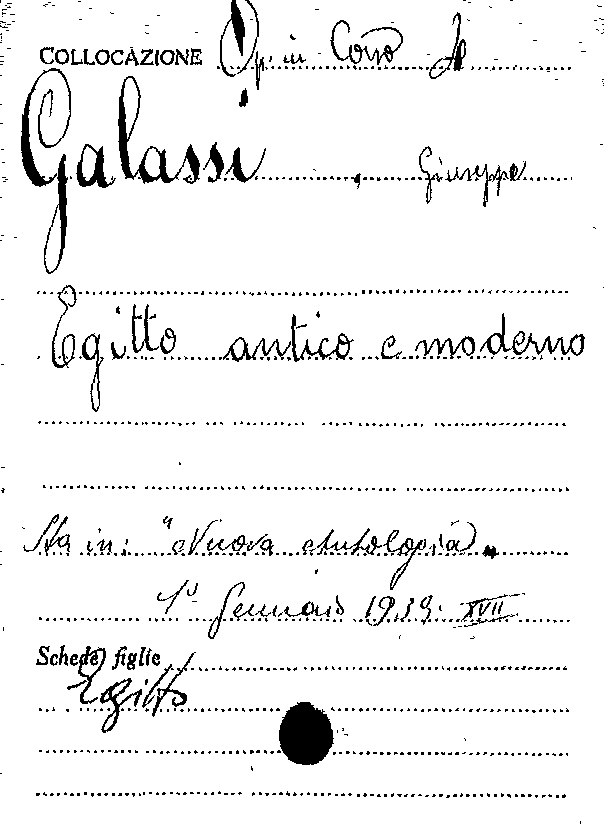 COLLOCAZIONE Op. in Corso
Galassi, Giuseppe
Egitto antico e moderno
Sta in: "Nuova Antologia"
1º Gennaio 1939. XVII
Schede figlie
Egitto